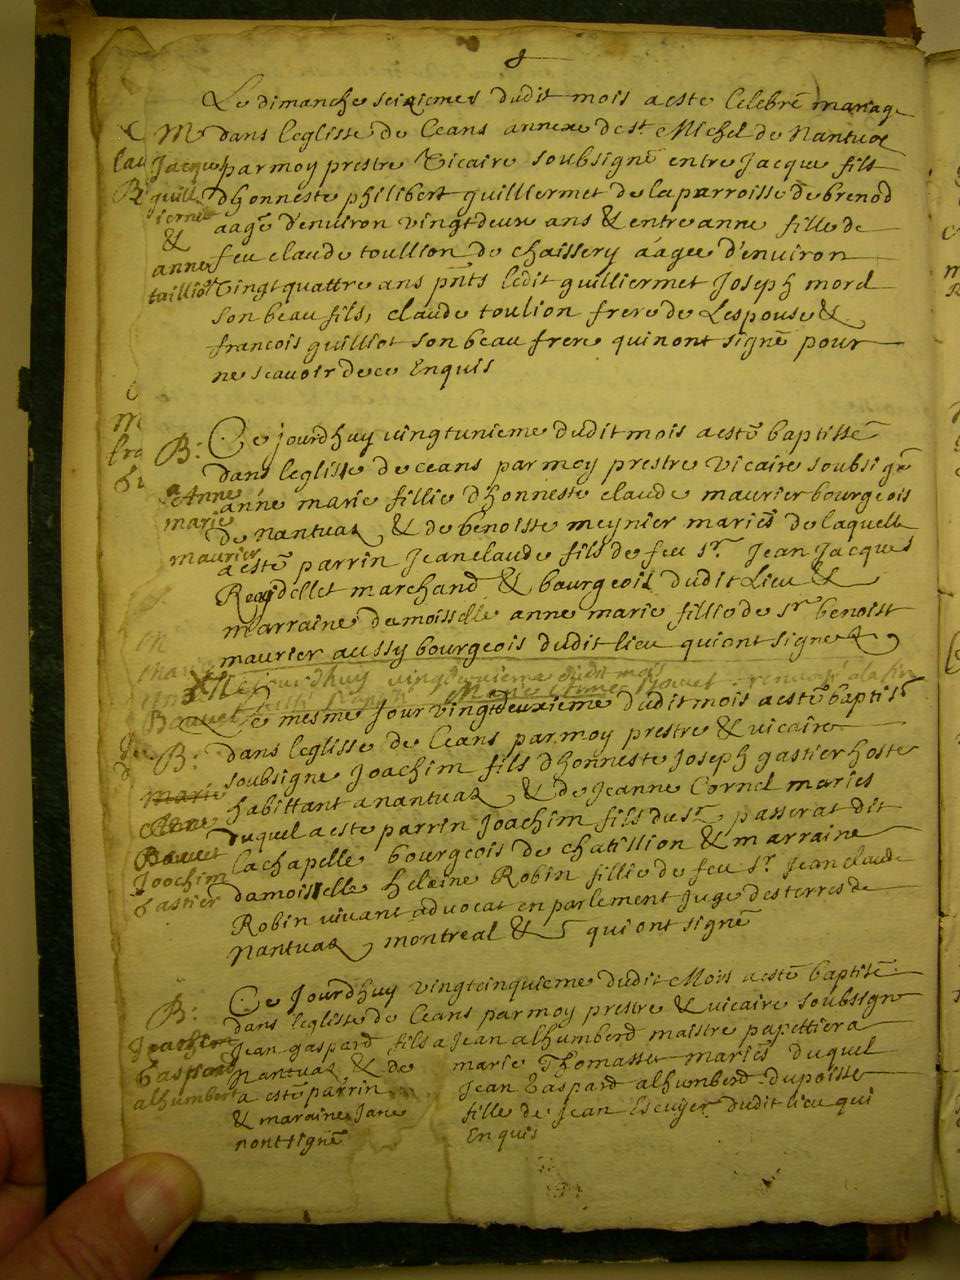 Le dimanche seixiemes dudit mois a esté celebré mariage
M dans leglisse de Ceans annexe de st Michel de Nantua
Jacques par moy prestre Vicaire soubsigné entre Jacque fils
guilli d'honneste philibert guilliermet de la parroisse de brenod
ermet aagé d'environ vingtdeux ans & entre anne fille de
& feu claude toullion de chaissery aagee d'environ
anne
taillion Vingt quattre ans pnts ledit guilliermet Joseph morel
son beau fils, claude toulion frere de Lespouse &
francois guilliot son beau frere qui nont signé pour
ne scavoir de ce Enquis
B: Ce jourdhuy vingtunieme dudit mois a esté baptissé
dans leglisse de ceans par moy prestre vicaire soubsigné
Anne anne marie fillie d'honneste claude maurier bourgeois
marie de nantuaz & de benoiste meynier mariés de laquelle
maurier a esté parrin Jean claude fils de feu sr. Jean Jacques
Reydellet marchand & bourgeois dudit Lieu &
marraine demoisselle anne marie fillie de sr benoist
maurier aussy bourgeois dudit lieu qui ont signe
jourdhuy vingtdeuxieme dudit mois
Bouvet
Ce mesme Jour vingtdeuxieme dudit mois a esté baptisé
B: dans leglisse de Ceans par moy prestre & vicaire
soubsigne Joachim fils d'honneste Joseph gastier hoste
Marie habittant a nantuaz & de Jeanne Cornel mariés
duquel a esté parrin Joachim fils du sr. passerat dit
Bouvet la chapelle bourgeois de chatillion & marraine
Joachim
gastier damoiselle helaine Robin fillie de feu sr. Jean claude
Robin vivant advocat en parlement Juge des terres de
Nantuaz, montreal & qui ont signé
B: Ce Jourdhuy vingtcinquieme dudit Mois a esté baptisé
dans leglisse de Ceans par moy prestre & vicaire soubsigné
Joachim Jean gaspard fils a Jean alhumberd maistre papettier a
Gaspard Nantuaz & de marie Thomasset mariés duquel
alhumbert a esté parrin Jean Gaspard alhumberd
& maraine Jane fille de Jean Escuyer dudit lieu qui
nont signé Enquis